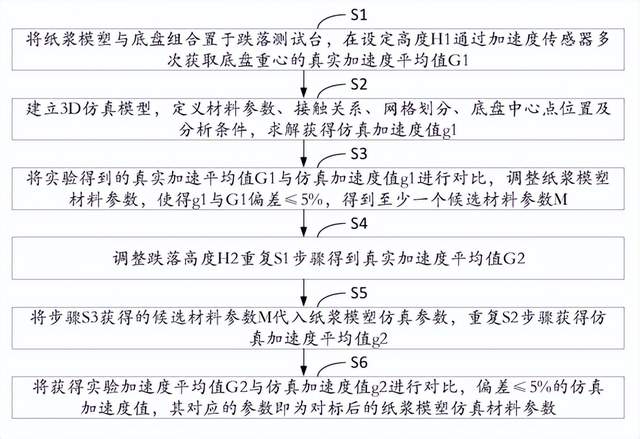 S1
将纸浆模塑与底盘组合置于跌落测试台，在设定高度H1通过加速度传感器多
次获取底盘重心的真实加速度平均值G1
S2
建立3D仿真模型，定义材料参数、接触关系、网格划分、底盘中心点位置及
分析条件，求解获得仿真加速度值g1
S3
将实验得到的真实加速平均值G1与仿真加速度值g1进行对比，调整纸浆模塑
材料参数，使得g1与G1偏差≤5%，得到至少一个候选材料参数M
S4
调整跌落高度H2重复S1步骤得到真实加速度平均值G2
S5
将步骤S3获得的候选材料参数M代入纸浆模塑仿真参数，重复S2步骤获得仿
真加速度平均值g2
S6
将获得实验加速度平均值G2与仿真加速度值g2进行对比，偏差≤5%的仿真
加速度值，其对应的参数即为对标后的纸浆模塑仿真材料参数